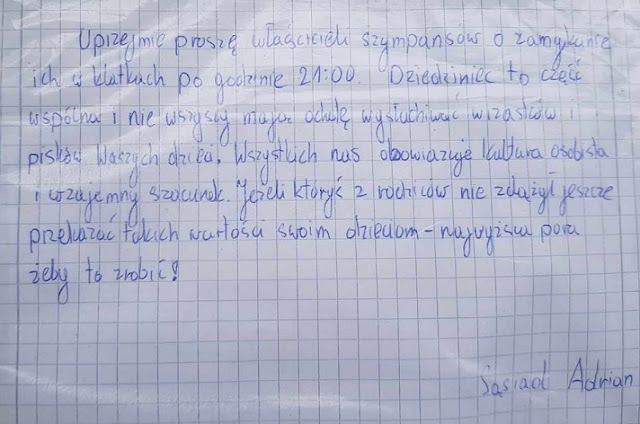 Uprzejmie proszę właścicieli szympansów o zamykanie
ich w klatkach po godzinie 21:00. Dziedziniec to część
wspólna i nie wszyscy mają ochotę wysłuchiwać wrzasków i
pisków Waszych dzieci. Wszystkich nas obowiązuje kultura osobista
i wzajemny szacunek. Jeżeli któryś z rodziców nie zdążył jeszcze
przekazać takich wartości swoim dzieciom - najwyższa pora
żeby to zrobić!
Sąsiad Adrian